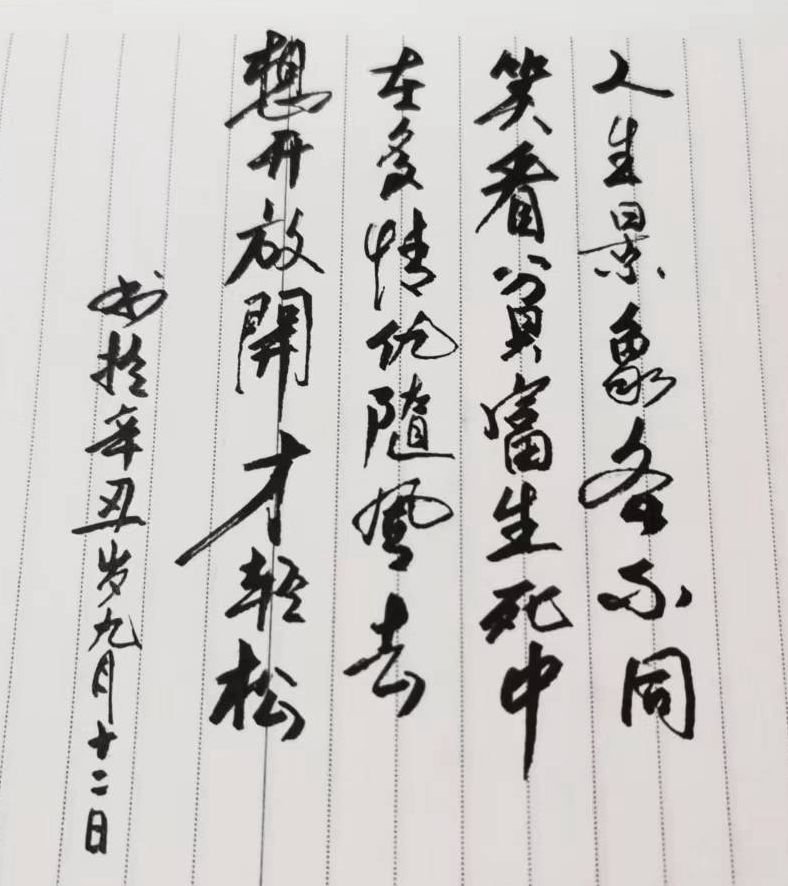 人生景象各不同
笑看貧富生死中
在爱情仇隨風去
想开放開才轻松
书於辛丑岁九月十二日